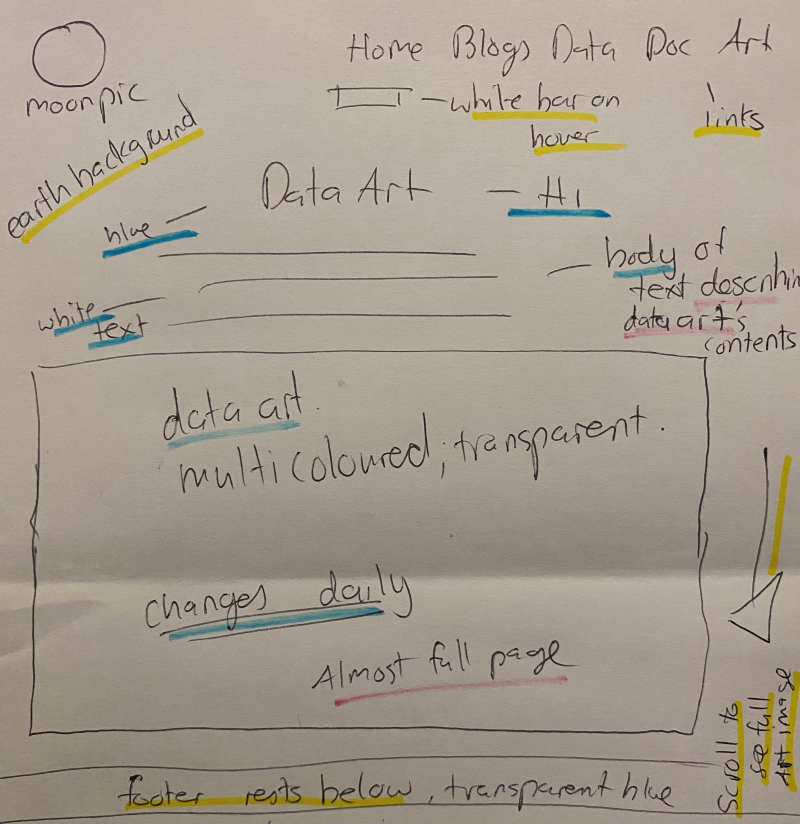 Home Blogs Data Doc Art
moonpic
white bar on
hover
links
earth background
Data Art
H1
blue
body of
text describin
data art's
contents
white
text
data art.
multicoloured; transparent.
changes daily
Almost full page
Scroll to
see full
Art image
footer rests below, transparent blue